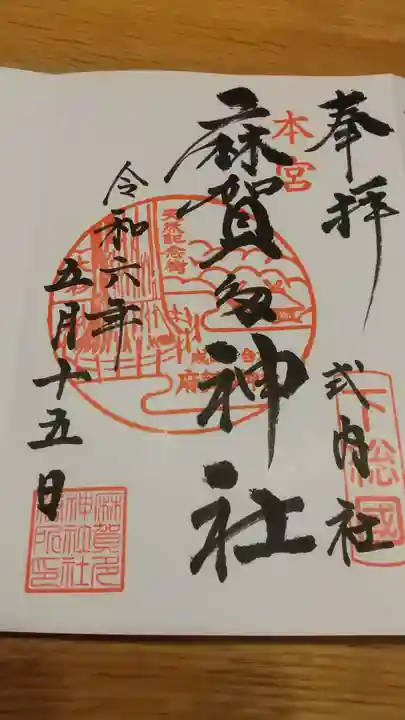 奉拝
式内社
下総國
本宮
麻賀多神社
天然記念物
令和六年
五月十五日
麻賀多
神社社
務所印